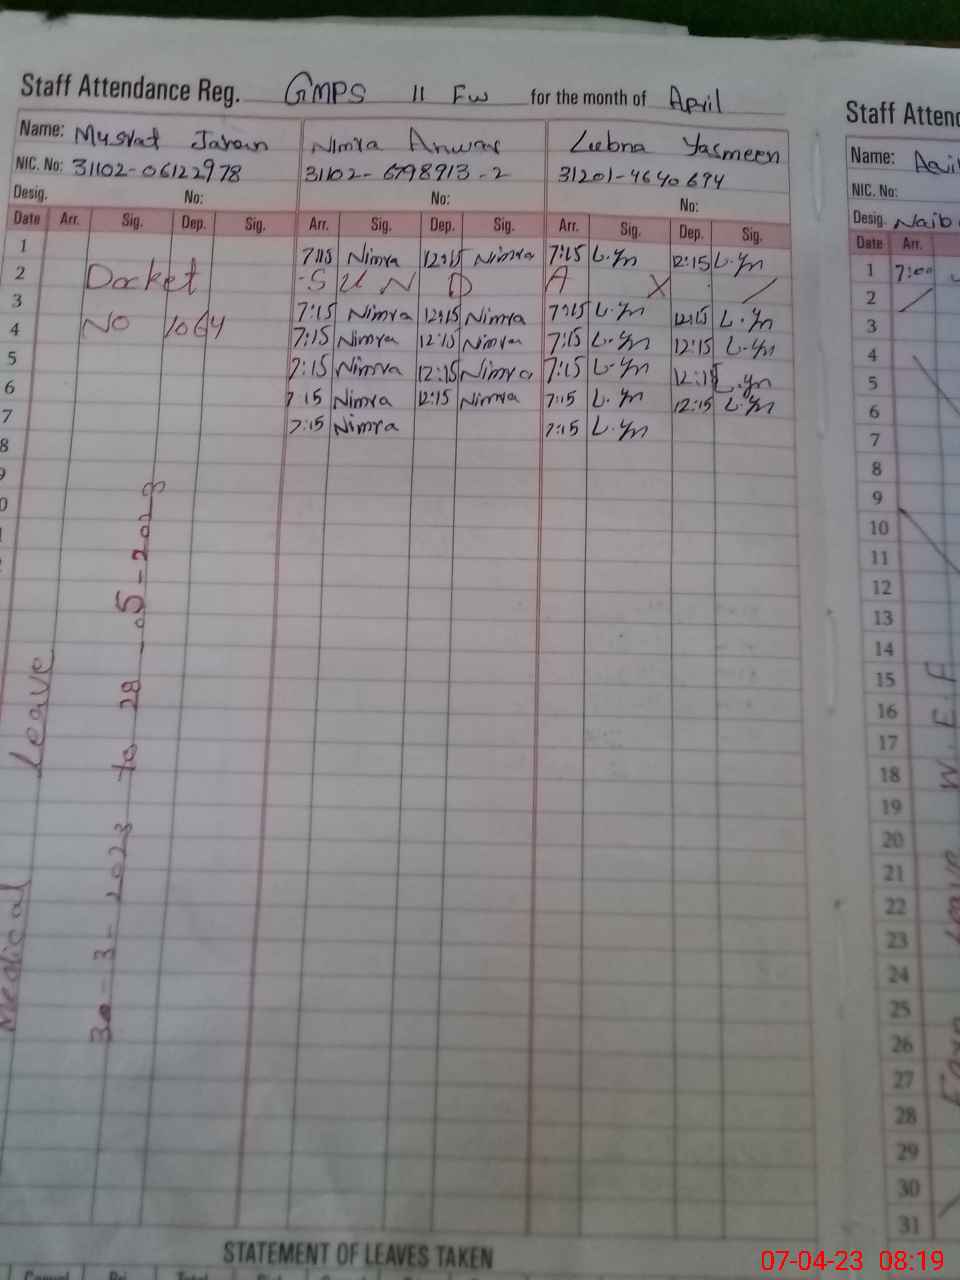 Staff Attendance Reg. GMPS 11 FW for the month of April
Name: Musrat Nimra Anwar Lubna Yasmeen
NIC. No: 31102-06122978 31102-6798913-2 31201-4640694
Desig. No: No: No:
Date Arr. Sig. Dep. Sig. Arr. Sig. Dep. Sig. Arr. Sig. Dep. Sig.
1 7:15 Nimra 12:15 Nimra 7:15 L.Yn 12:15 L.Yn
2 Docket S U N D A Y
3 7:15 Nimra 12:15 Nimra 7:15 L.Yn 12:15 L.Yn
4 NO 1064 7:15 Nimra 12:15 Nimra 7:15 L.Yn 12:15 L.Yn
5 7:15 Nimra 12:15 Nimra 7:15 L.Yn 12:15 L.Yn
6 7:15 Nimra 12:15 Nimra 7:15 L.Yn 12:15 L.Yn
7 7:15 Nimra 7:15 L.Yn
8
Medical Leave
30-3-2023 to 28-05-2023
STATEMENT OF LEAVES TAKEN
Staff Attend
Name:
NIC. No:
Desig. Naib
Date Arr.
1 7:00
2
3
4
5
6
7
8
9
10
11
12
13
14
15
16
17
18
19
20
21
22
23
24
25
26
27
28
29
30
31
Leave W.E.F
07-04-23 08:19